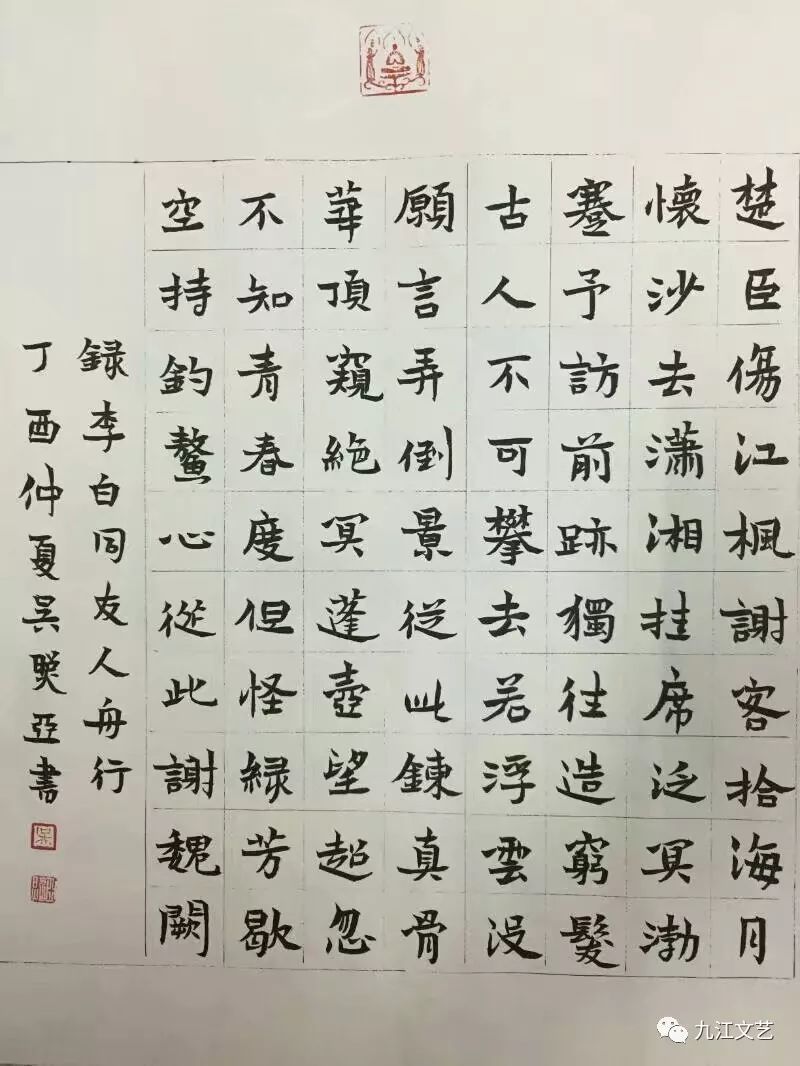 楚臣傷江楓謝客拾海月
懷沙去瀟湘挂席泛冥渤
蹇予訪前跡獨往造窮髮
古人不可攀去若浮雲没
願言弄倒景從此鍊真骨
華頂窺絶冥蓬壺望超忽
不知青春度但怪緑芳歇
空持釣鰲心從此謝魏闕
録李白同友人舟行
丁酉仲夏吴亞書
九江文艺